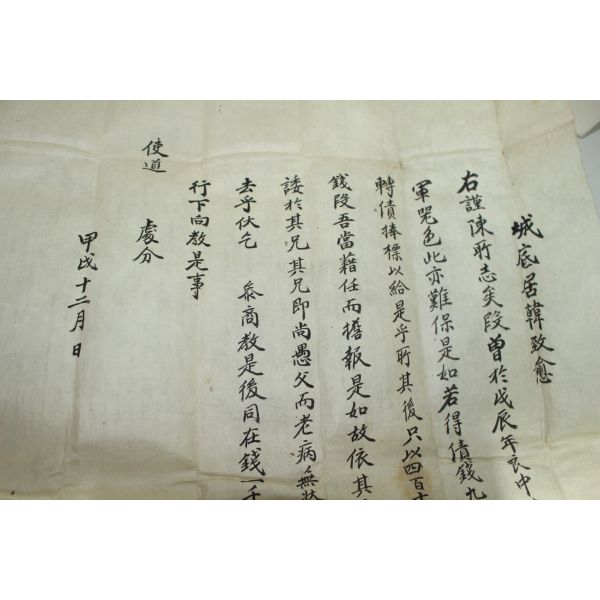 城底居韓致愈
右謹陳所志矣段曾於戊辰年良中
軍器色此亦難保是如若得債錢九
轉債捧標以給是乎所其後只以四百
錢段吾當藉任而擔報是如故依其
諉於其兄其兄即尚愚父而老病無狀
去乎伏乞 參商教是後同在錢一千
行下向教是事
使道 處分
甲戌十二月 日